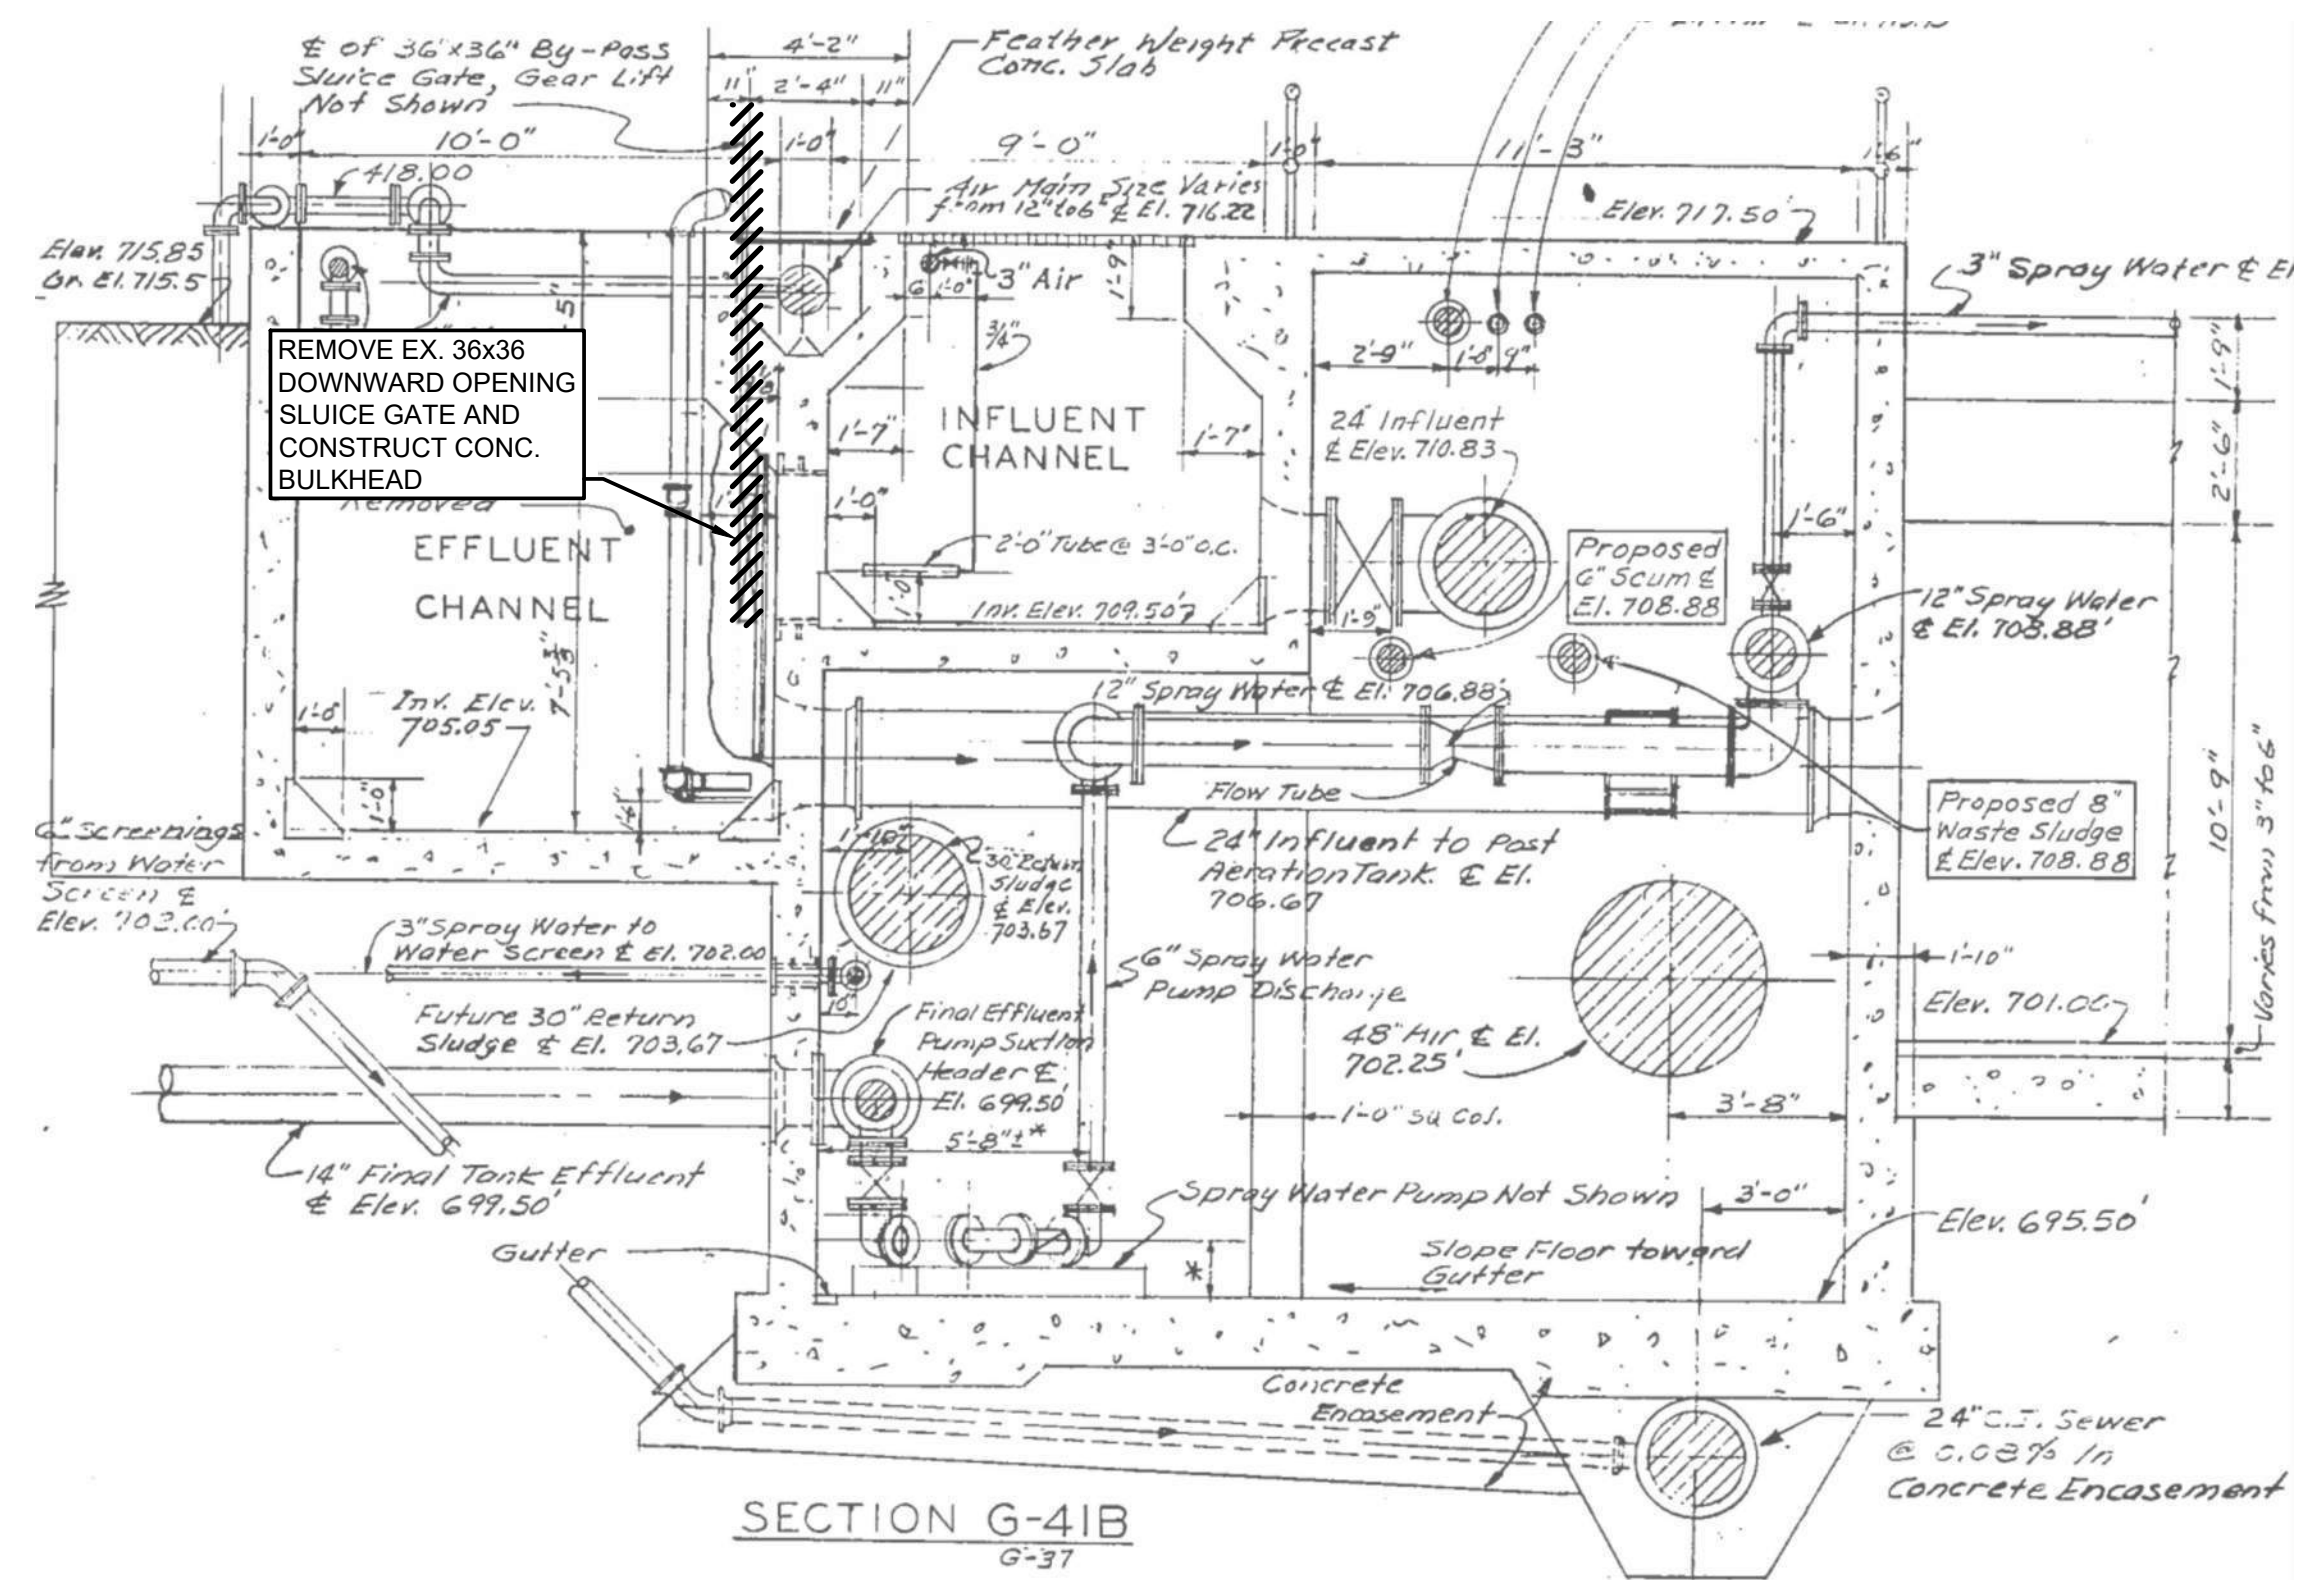 ₵ of 36"x36" By-Pass
Sluice Gate, Gear Lift
Not Shown
4'-2"
11"
2'-4"
11"
Feather Weight Precast
Conc. Slab
1'-0"
10'-0"
1'-0"
9'-0"
1'-0"
11'-3"
1'-6"
418.00
Air Main Size Varies
from 12" to 6" ₵ El. 716.22
Elev. 717.50'
Elev. 715.85
Gr. El. 715.5
3" Spray Water ₵ El
3" Air
6"
1'-0"
1'-9"
3/4"
2'-9"
1'-0"
9"
1'-9"
2'-6"
REMOVE EX. 36x36
DOWNWARD OPENING
SLUICE GATE AND
CONSTRUCT CONC.
BULKHEAD
Removed
EFFLUENT
CHANNEL
INFLUENT
CHANNEL
1'-7"
1'-7"
1'-0"
24" Influent
₵ Elev. 710.83
1'-6"
2'-0" Tube @ 3'-0" O.C.
1'-0"
Inv. Elev. 709.50'
1'-9"
Proposed
6" Scum ₵
El. 708.88
12" Spray Water
₵ El. 708.88'
7'-5 3/4"
Inv. Elev.
705.05
1'-0"
1'-0"
12" Spray Water ₵ El. 706.88'
Flow Tube
24" Influent to Post
Aeration Tank ₵ El.
706.67
Proposed 8"
Waste Sludge
₵ Elev. 708.88
10'-9"
Varies from 3" to 6"
6" Screenings
from Water
Screen ₵
Elev. 702.00'
1'-10"
30" Return
Sludge
₵ Elev.
703.67
3" Spray Water to
Water Screen ₵ El. 702.00
10"
6" Spray Water
Pump Discharge
1'-10"
Elev. 701.00
Future 30" Return
Sludge ₵ El. 703.67
Final Effluent
Pump Suction
Header ₵
El. 699.50'
48" Air ₵ El.
702.25'
1'-0" sq Col.
3'-8"
5'-8"±*
14" Final Tank Effluent
₵ Elev. 699.50'
Spray Water Pump Not Shown
3'-0"
Elev. 695.50'
Gutter
*
Slope Floor toward
Gutter
Concrete
Encasement
24" C.I. Sewer
@ 0.08% in
Concrete Encasement
SECTION G-41B
G-37